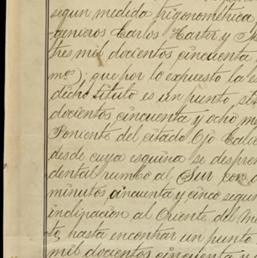 segun medida trigonometrica
genieros Carlos Harter y
tres mil docientos cincuenta
mos), que por lo expuesto la es
dicho titulo es un punto, si
docientos cincuenta y ocho m
Poniente del citado Ojo Cali
desde cuya esquina se despren
dental rumbo al Sur con
minutos, cincuenta y cinco segun
inclinacion al Oriente del Me
to, hasta encontrar un punto
mil docientos cincuenta y